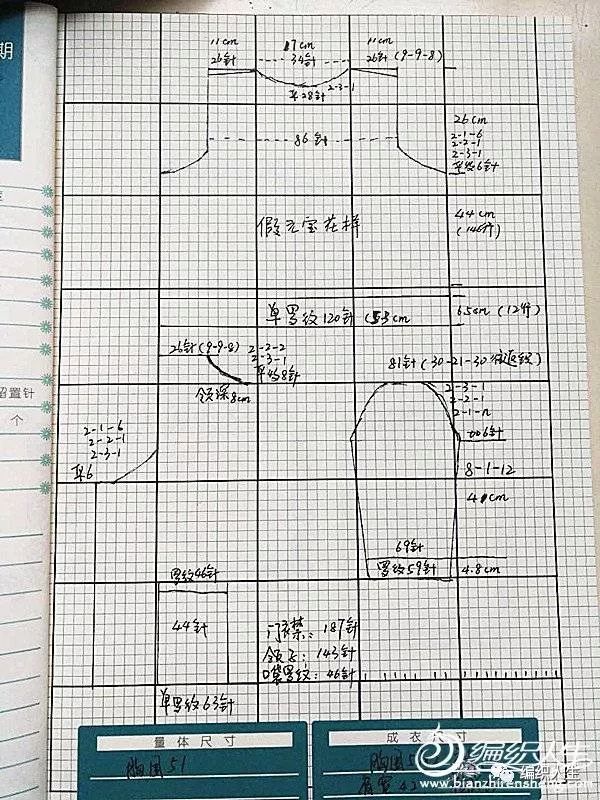 期
11cm 17cm 11cm
26针 34针 26针(9-9-8)
平28针 2-3-1
26cm
2-1-6
2-2-1
2-3-1
平收6针
86针
44cm
(146行)
假元宝花样
单罗纹120针 (53cm
6.5cm (12行)
26针(9-9-8) 2-2-2
2-3-1
平收8针
领深8cm
81针(30-21-30
2-3-1
2-2-1
2-1-n
加6针
8-1-12
2-1-6
2-2-1
2-3-1
平6
留置针
个
69针
罗纹59针
4.8cm
罗纹46针
44针
单罗纹63针
门襟:187针
领子:143针
口袋罗纹:46针
量体尺寸
成衣尺寸
胸围51
胸围5
编织人生
bianzhirensheng.com
编织人生